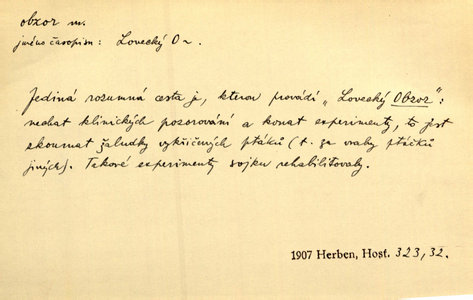 obzor m.
jméno časopisu: Lovecký O~.
Jediná rozumná cesta je, kterou provádí „Lovecký Obzor":
nechat klinických pozorování a konat experimenty, to jest
zkoumat žaludky vykřičených ptáků (t. za vrahy ptáčků
jiných). Takové experimenty sojku rehabilitovaly.
1907 Herben, Host. 323,32.